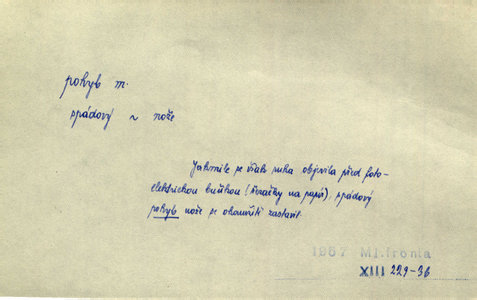 pohyb m.
spádový ~ nože
Jakmile se však ruka objevila před foto-
elektrickou buňkou (řezačky na papír), spádový
pohyb nože se okamžitě zastavil.
1957 Ml.fronta
XIII 229-36